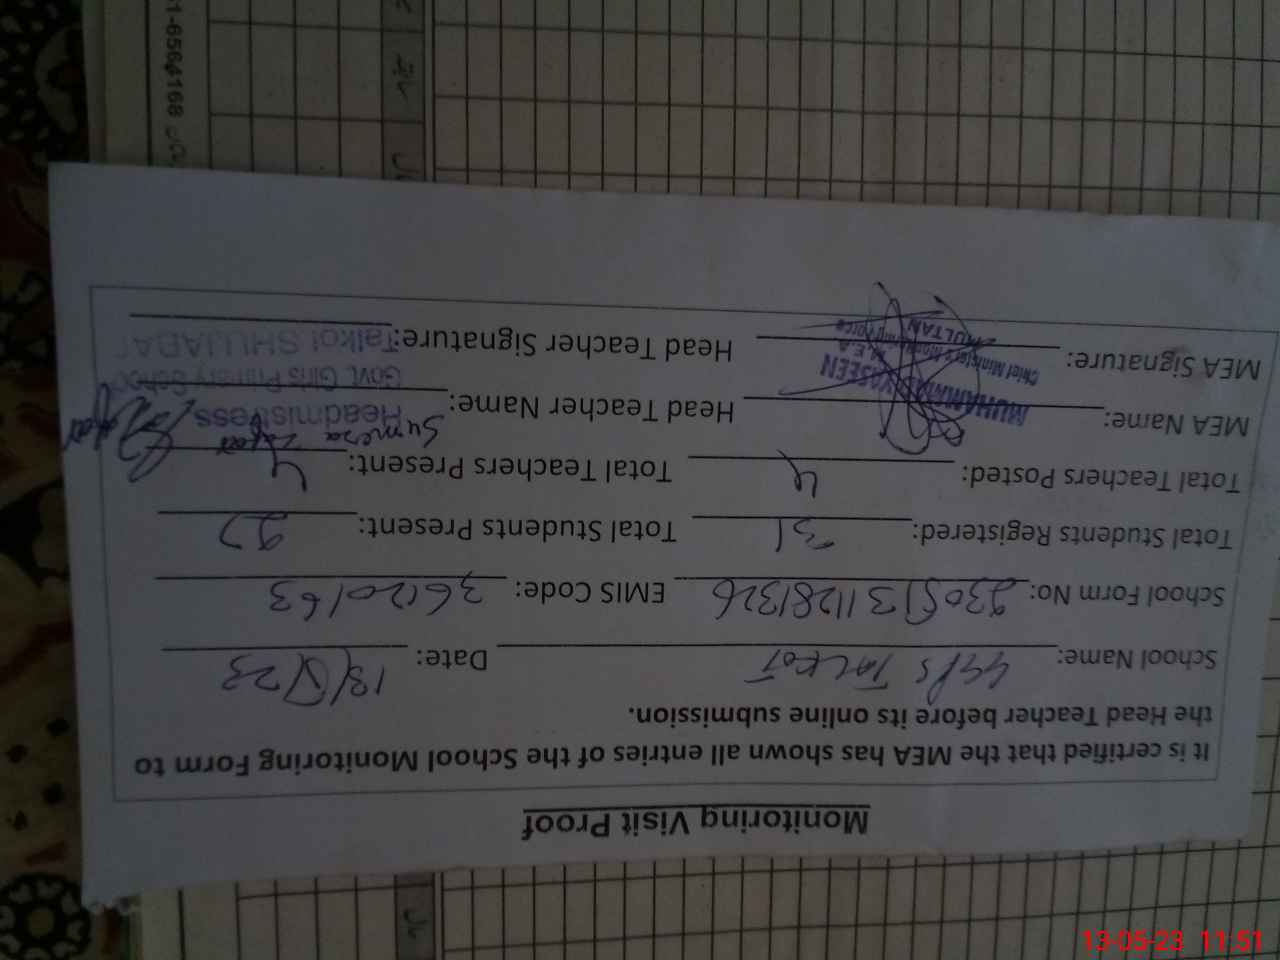 Monitoring Visit Proof
It is certified that the MEA has shown all entries of the School Monitoring Form to
the Head Teacher before its online submission.
School Name: GGPS TALKOT Date: 13/5/23
School Form No: 23051311281326 EMIS Code: 36120163
Total Students Registered: 31 Total Students Present: 27
Total Teachers Posted: 4 Total Teachers Present: 4
MEA Name: MUHAMMAD YASEEN Head Teacher Name: Sumera
MEA Signature: Head Teacher Signature:
Chief Minister's Monitoring Force
MULTAN
Headmistress
Govt. Girls Primary School
Talkot SHUJABAD
13-05-23 11:51